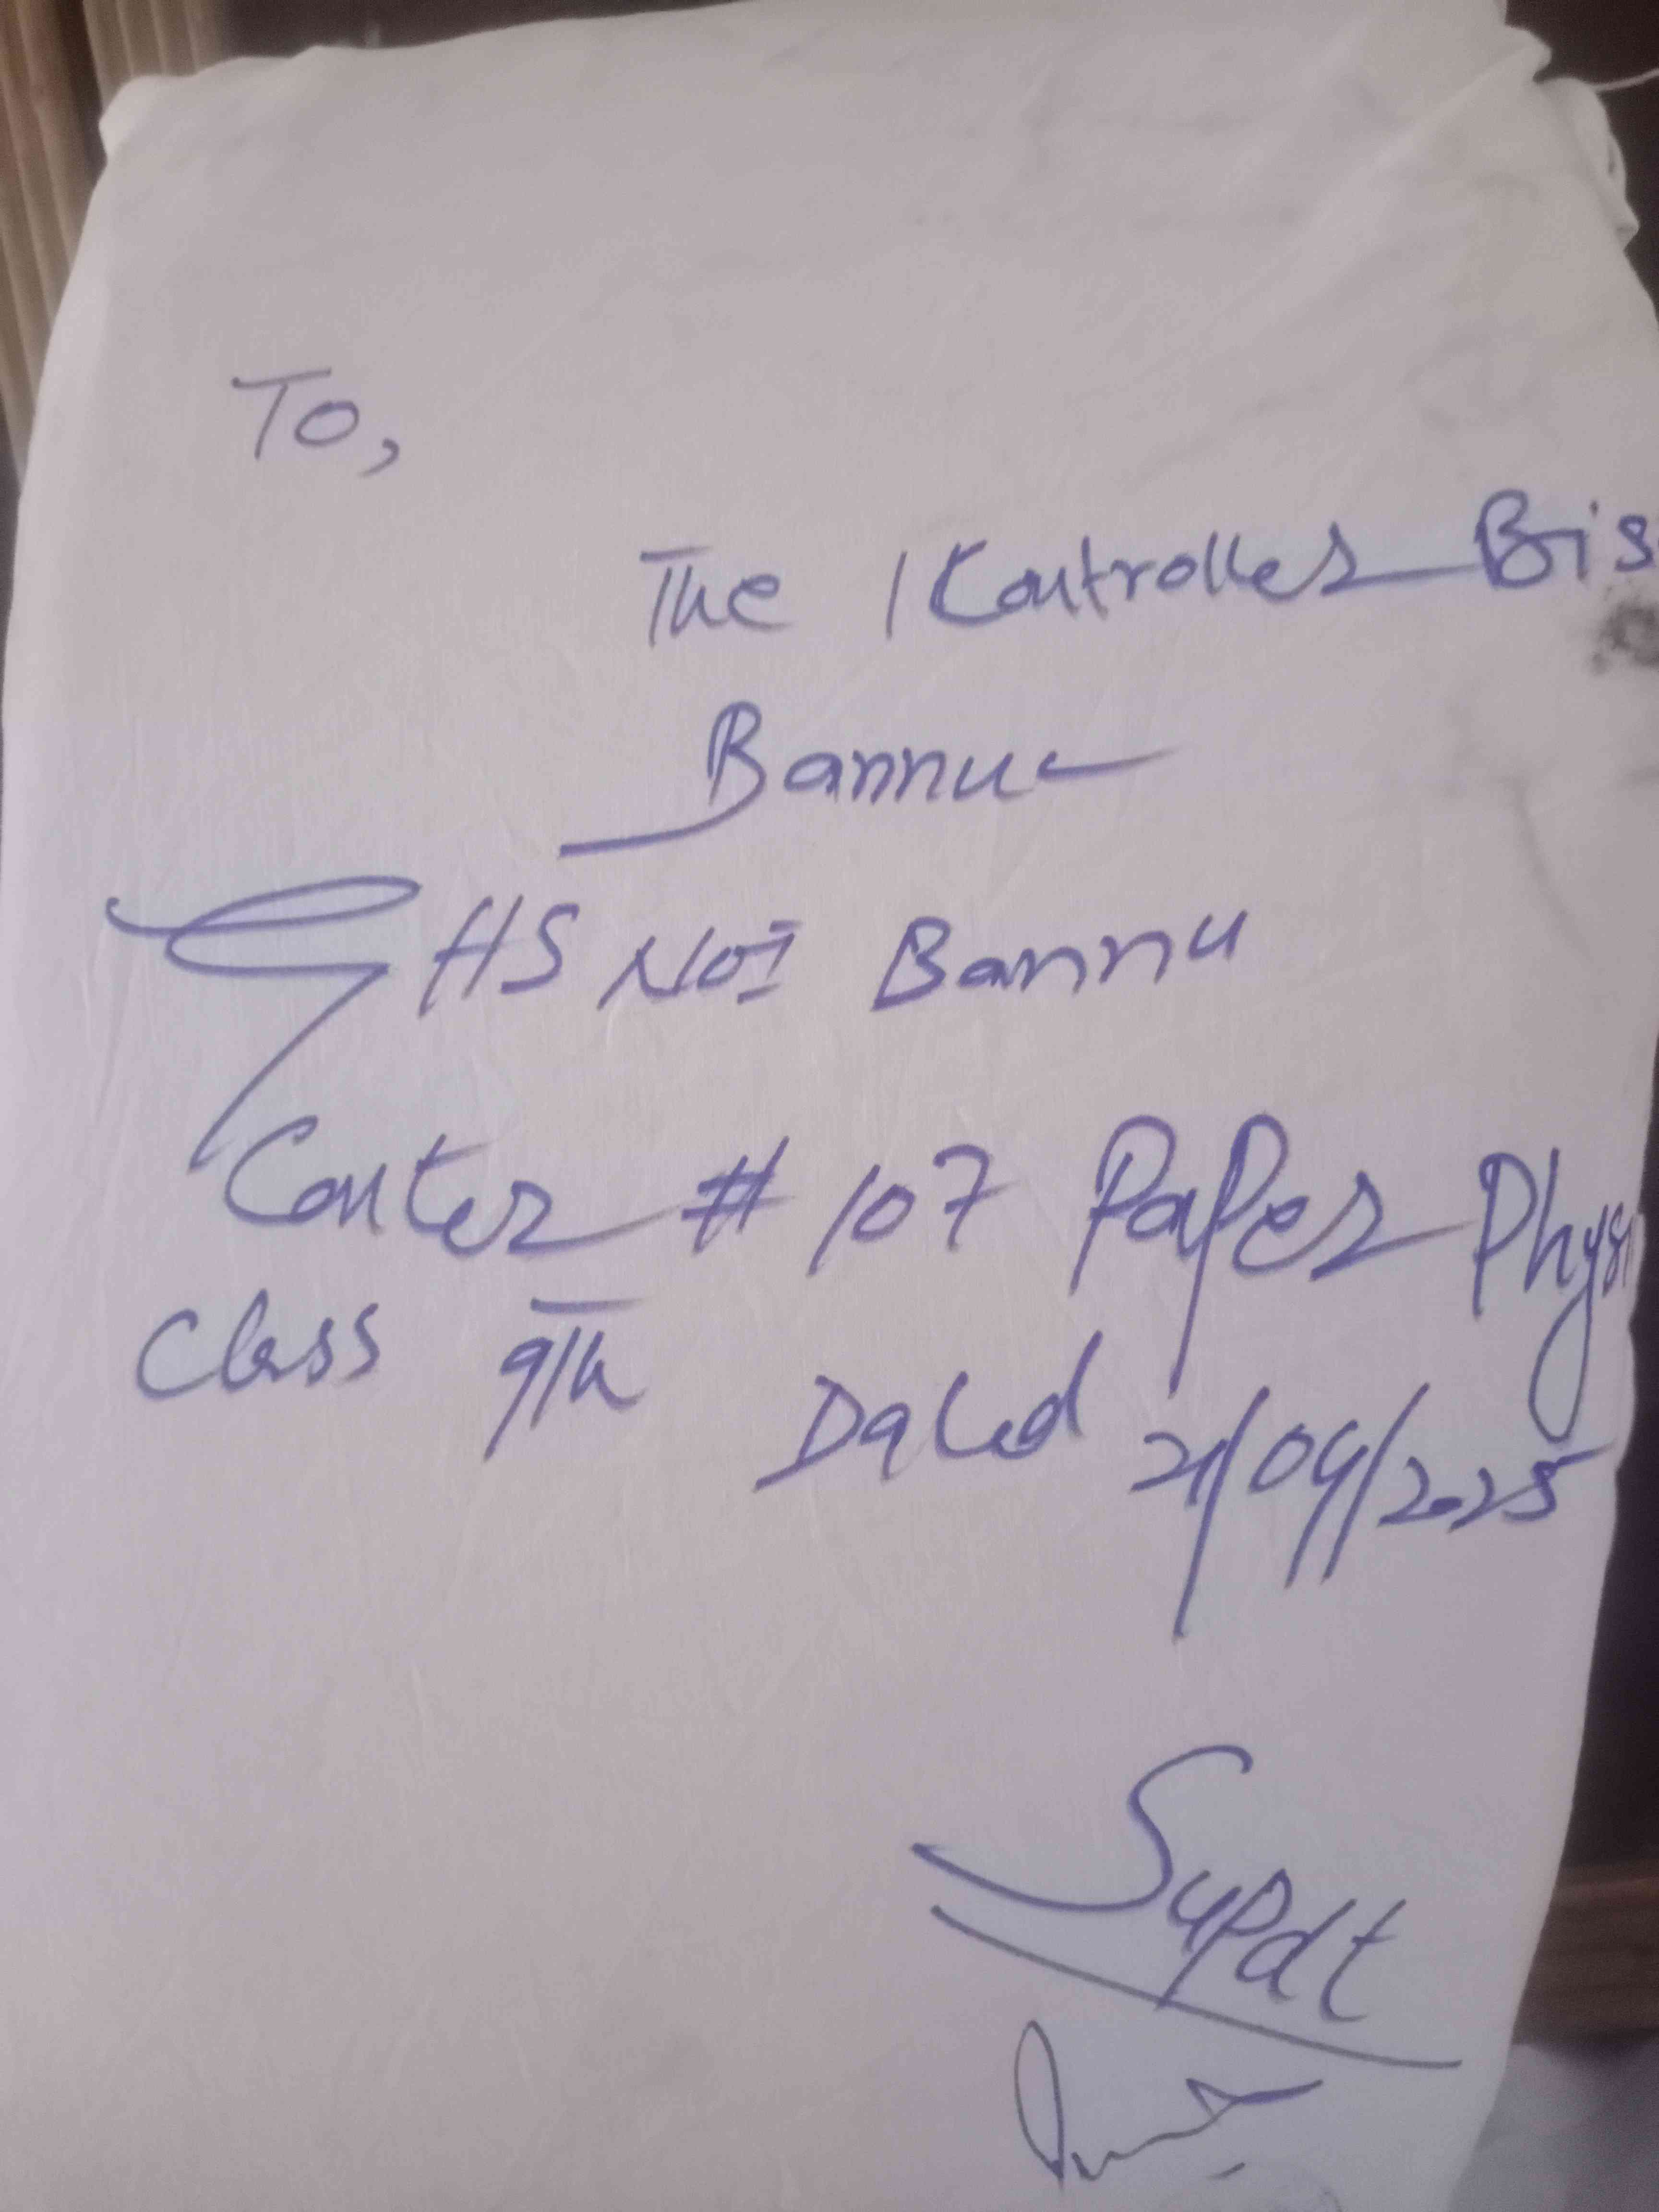 To,
The Controller Bis
Bannu
GHS No I Bannu
Center # 107 Paper Physi
Class 9th Dated 21/04/2025
Supdt